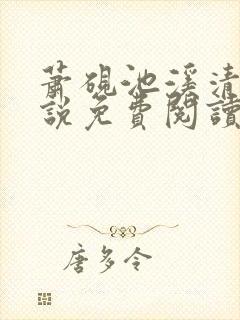 蕭硯池溪清
說免費閱讀
唐多令